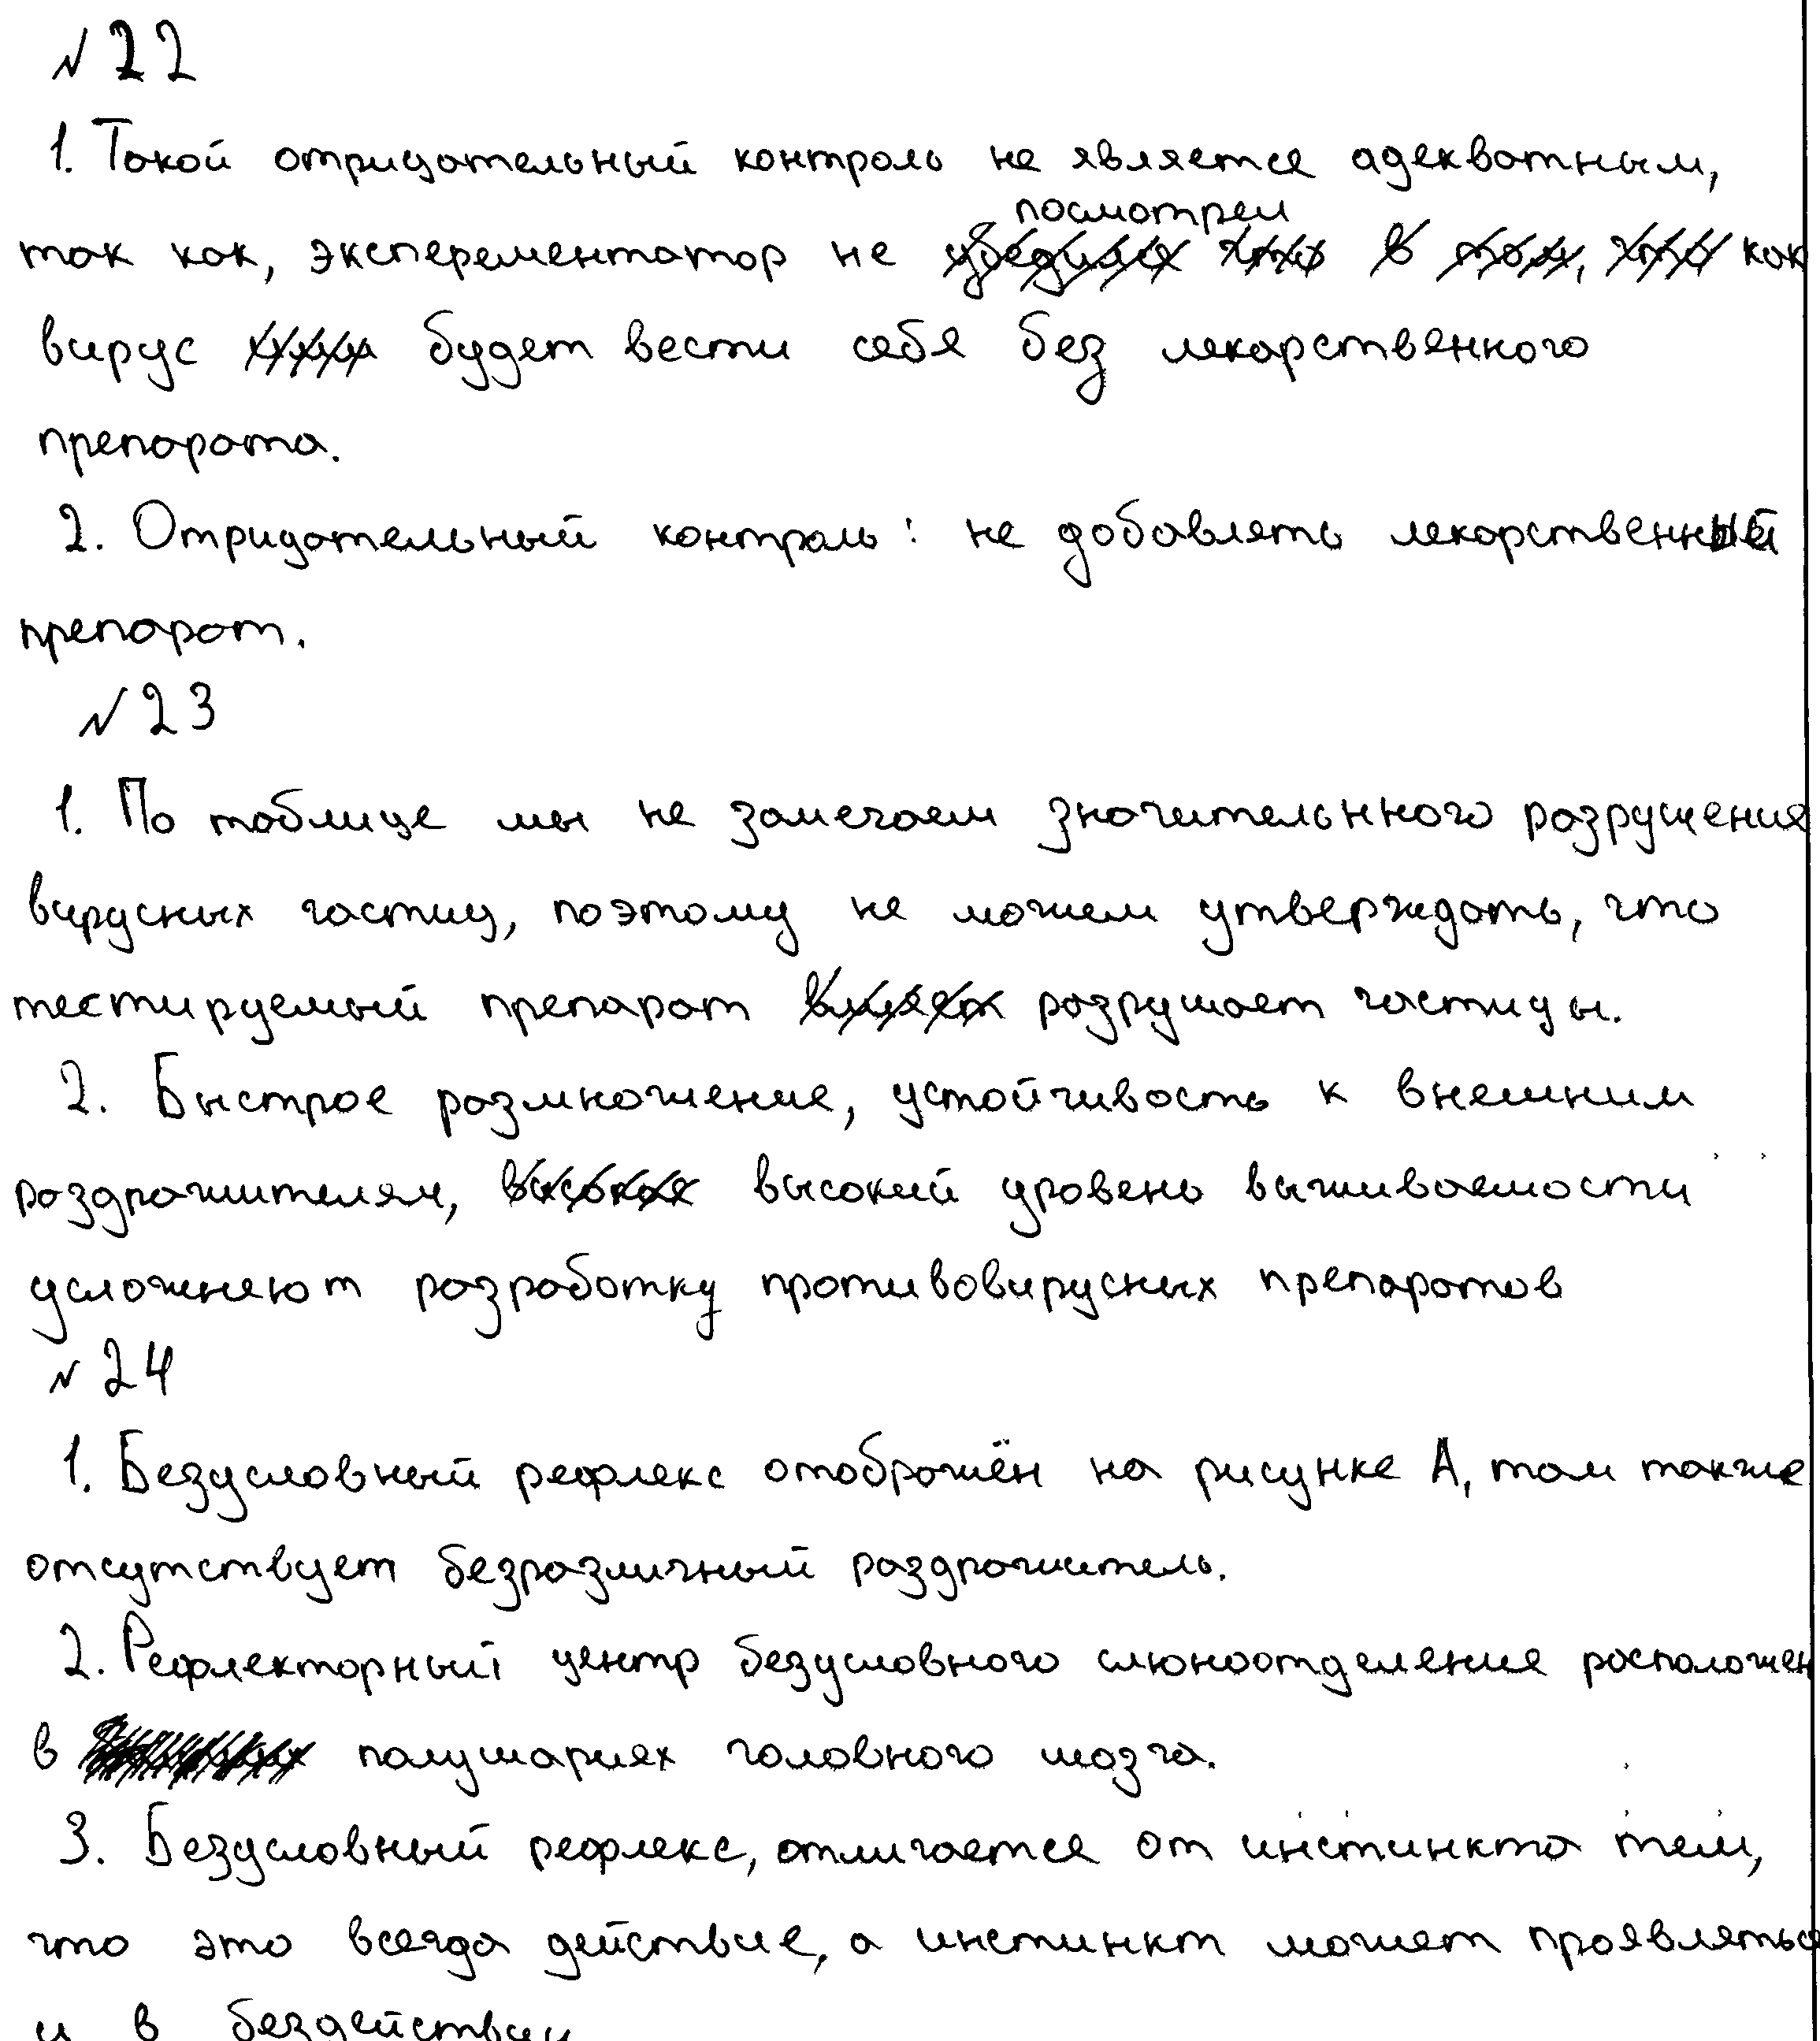 №22
1. Такой отрицательный контроль не является адекватным,
посмотрел
так как, эксперементатор не убедился что в том, что как
вирус будет вести себя без лекарственного
препарата.
2. Отрицательный контроль: не добавлять лекарственный
препарат.
№23
1. По таблице мы не замечаем значительнного разрушения
вирусных частиц, поэтому не можем утверждать, что
тестируемый препарат влияет разрушает частицы.
2. Быстрое размножение, устойчивость к внешним
раздражителям, высокая высокий уровень выживаемости
усложняют разработку противовирусных препаратов
№24
1. Безусловный рефлекс отображён на рисунке А, там также
отсутствует безразличный раздражитель.
2. Рефлекторный центр безусловного слюноотделения расположен
в полушариях головного мозга.
3. Безусловный рефлекс, отличается от инстинкта тем,
что это всегда действие, а инстинкт может проявляться
и в бездействии